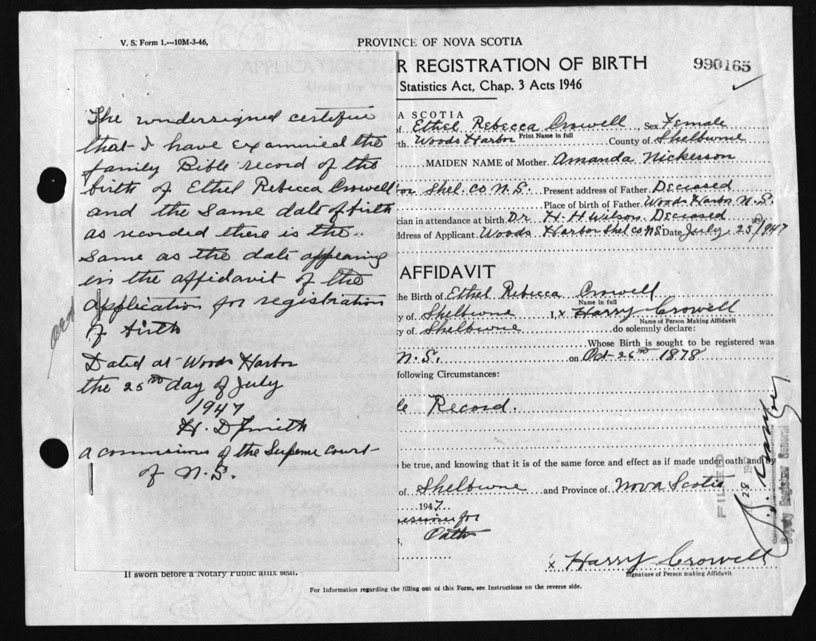 V. S. Form 1.—10M-3-46.
PROVINCE OF NOVA SCOTIA
R REGISTRATION OF BIRTH
990165
Statistics Act, Chap. 3 Acts 1946
The undersigned certifies
that I have examined the
family Bible record of the
birth of Ethel Rebecca Crowell
and the same date of birth
as recorded there is the
same as the date appearing
in the affidavit of the
application for registration
of birth
Dated at Woods Harbor
the 25th day of July
1947
H. D Smith
a commissions of the Supreme Court
of N.S.
A SCOTIA
of Ethel Rebecca Crowell, Sex Female
Print Name in full
th. Woods Harbor County of Shelburne
MAIDEN NAME of Mother Amanda Nickerson
Shel. Co N.S. Present address of Father Deceased
Place of birth of Father Woods Harbor N.S.
cian in attendance at birth Dr H. H Wilson Deceased
ddress of Applicant Woods Harbor Shel co NS Date July 25/1947
AFFIDAVIT
he Birth of Ethel Rebecca Crowell
Name in full
y of Shelburne I, x Harry Crowell
Name of Person Making Affidavit
y of Shelburne do solemnly declare:
Whose Birth is sought to be registered was
N.S. on Oct 26th 1878
following Circumstances:
le Record.
be true, and knowing that it is of the same force and effect as if made under oath and by
of Shelburne and Province of Nova Scotia
1947
missioner for
Oaths
x Harry Crowell
Signature of Person making Affidavit
If sworn before a Notary Public affix seal.
For Information regarding the filling out of this Form, see Instructions on the reverse side.
FILED
Deputy Registrar General